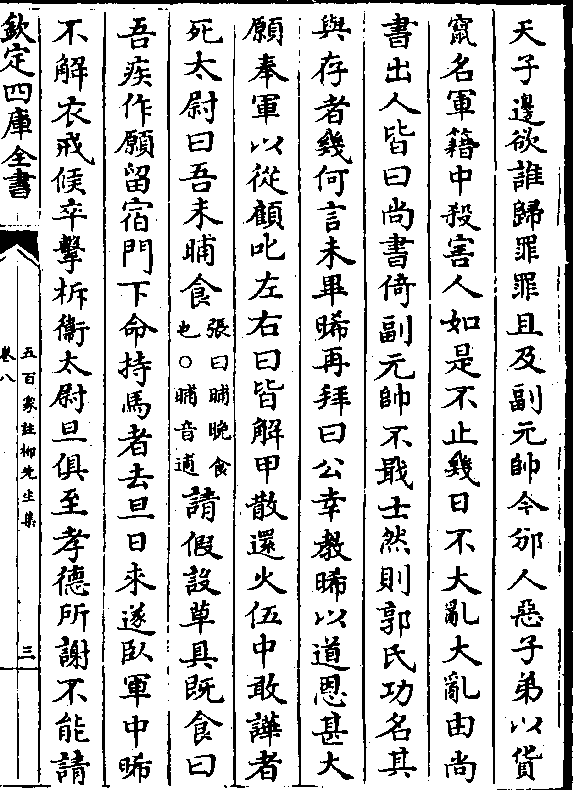 天子邊欲誰歸罪罪且及副元帥今邠人惡子弟以貨
竄名軍籍中殺害人如是不止幾日不大亂大亂由尚
書出人皆曰尚書倚副元帥不戢士然則郭氏功名其
與存者幾何言未畢晞再拜曰公幸教晞以道恩甚大
願奉軍以從顧叱左右曰皆解甲散還火伍中敢譁者
死太尉曰吾未晡食張曰晡晚食也○晡音逋請假設草具既食曰
吾疾作願留宿門下命持馬者去旦日来遂臥軍中晞
不解衣戒候卒擊柝衛太尉旦俱至孝德所謝不能請
欽定四庫全書
五百家註柳先生集
卷八
三